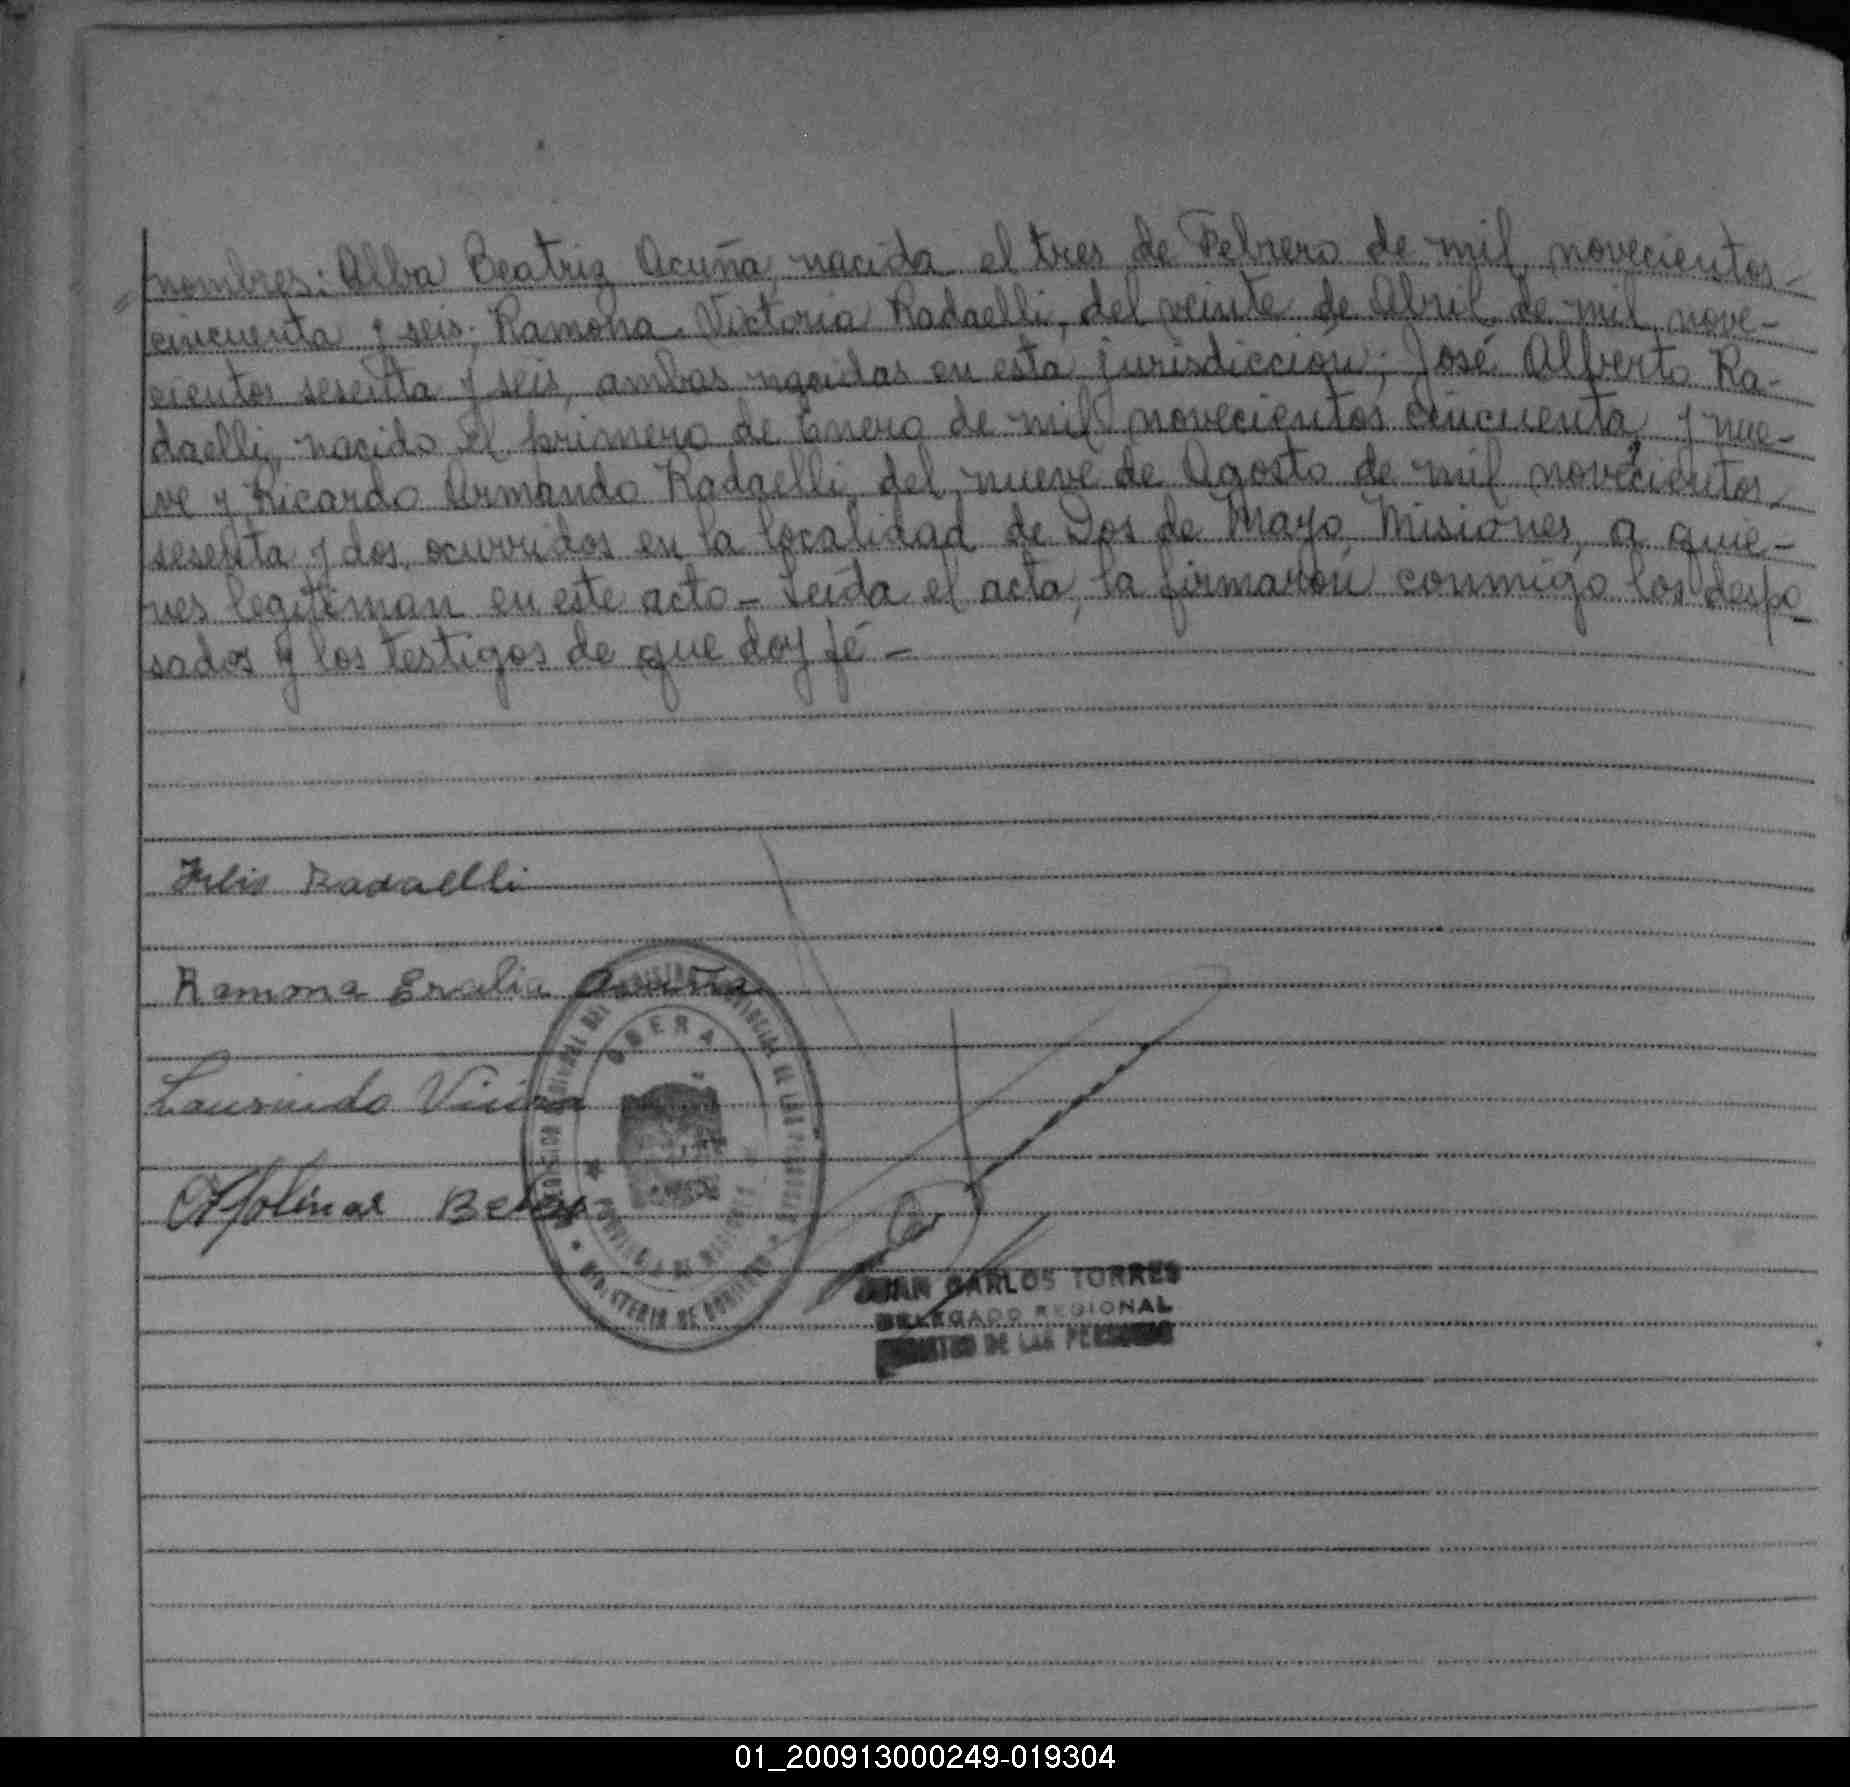 nombres: Alba Beatriz Acuña, nacida el tres de Febrero de mil novecientos
cincuenta y seis; Ramona Victoria Radaelli, del veinte de Abril de mil nove-
cientos sesenta y seis, ambas nacidas en esta jurisdicción; José Alberto Ra-
daelli, nacido el primero de Enero de mil novecientos cincuenta y nue-
ve y Ricardo Armando Radaelli, del nueve de Agosto de mil novecientos
sesenta y dos, ocurridos en la localidad de Dos de Mayo, Misiones, a quie-
nes legitiman en este acto - Leída el acta, la firmaron conmigo los despo-
sados y los testigos de que doy fé -
Radaelli
Ramona Eralia Acuña
Laurindo Vieira
OBERA
MINISTERIO DE GOBIERNO
JUAN CARLOS TORRES
DELEGADO REGIONAL
REGISTRO DE LAS PERSONAS
01_200913000249-019304